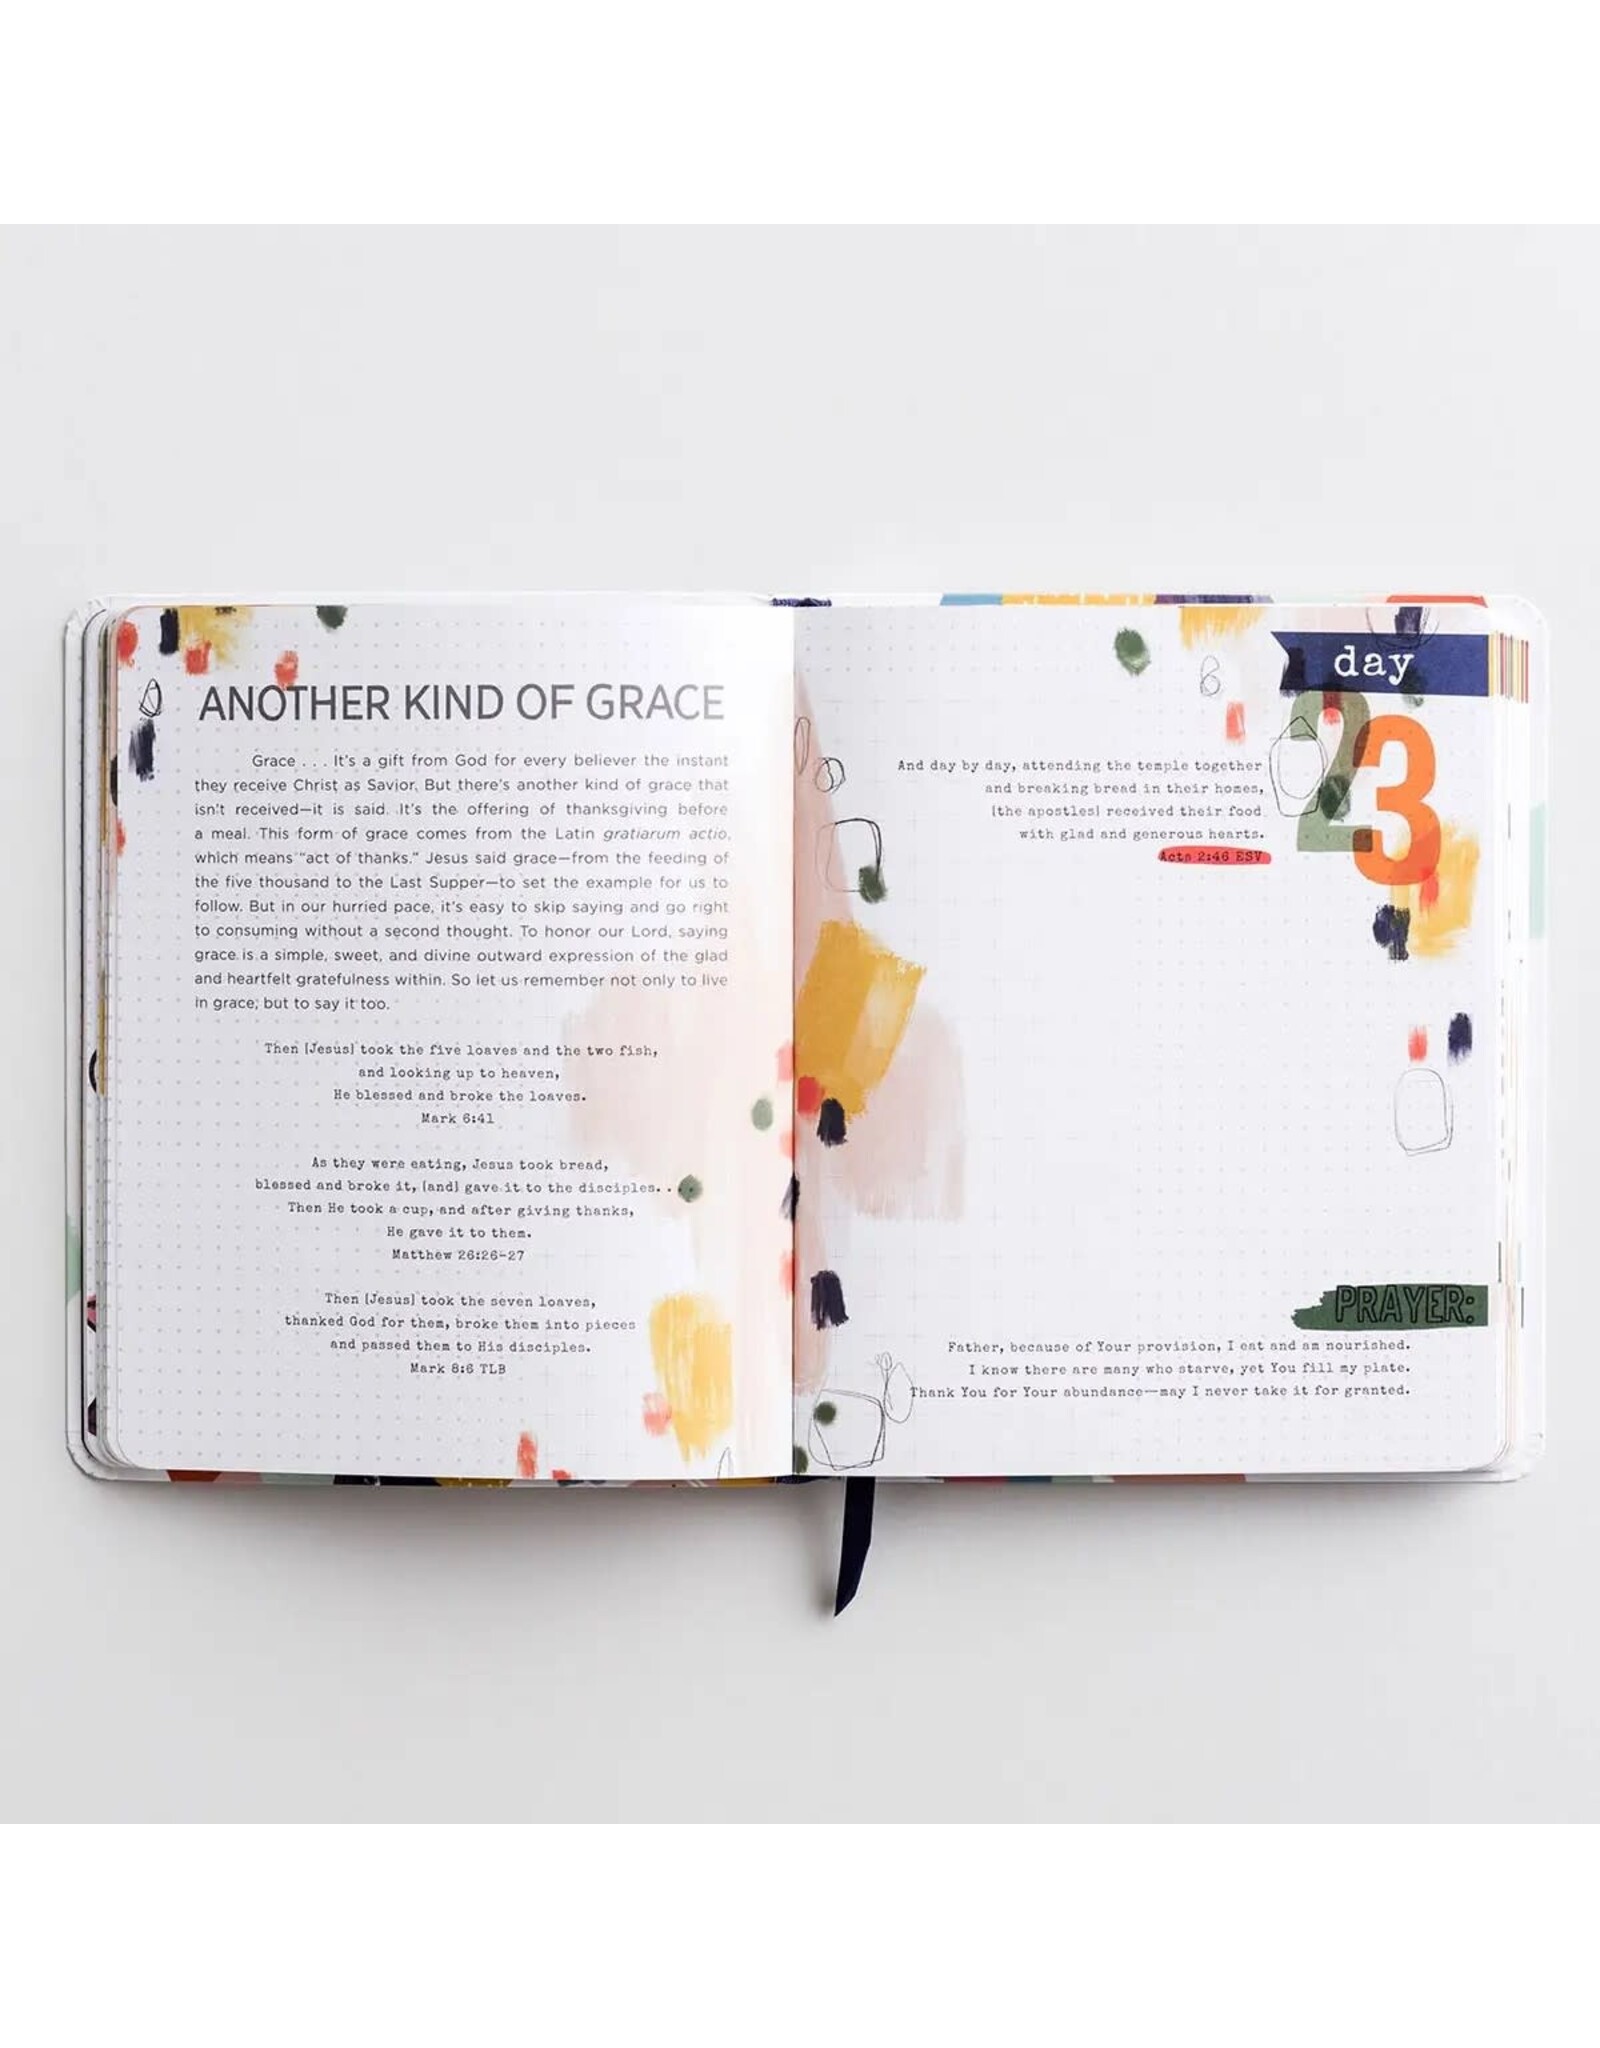 ANOTHER KIND OF GRACE
Grace . . . It's a gift from God for every believer the instant
they receive Christ as Savior. But there's another kind of grace that
isn't received—it is said. It's the offering of thanksgiving before
a meal. This form of grace comes from the Latin gratiarum actio,
which means “act of thanks.” Jesus said grace—from the feeding of
the five thousand to the Last Supper—to set the example for us to
follow. But in our hurried pace, it's easy to skip saying and go right
to consuming without a second thought. To honor our Lord, saying
grace is a simple, sweet, and divine outward expression of the glad
and heartfelt gratefulness within. So let us remember not only to live
in grace, but to say it too.
Then [Jesus] took the five loaves and the two fish,
and looking up to heaven,
He blessed and broke the loaves.
Mark 6:41
As they were eating, Jesus took bread,
blessed and broke it, [and] gave it to the disciples. . .
Then He took a cup, and after giving thanks,
He gave it to them.
Matthew 26:26-27
Then [Jesus] took the seven loaves,
thanked God for them, broke them into pieces
and passed them to His disciples.
Mark 8:6 TLB
day
23
And day by day, attending the temple together
and breaking bread in their homes,
[the apostles] received their food
with glad and generous hearts.
Acts 2:46 ESV
PRAYER:
Father, because of Your provision, I eat and am nourished.
I know there are many who starve, yet You fill my plate.
Thank You for Your abundance—may I never take it for granted.